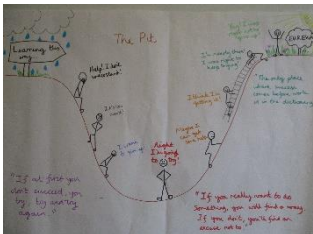 Learning this way
The Pit
Help! I don't
understand!
I want to give up
Right
I'm going
to try!
Maybe I
can get
I think I'm
getting it!
I'm nearly there!
keep trying!
EUREKA
"The only place
where success
comes before work
is in the dictionary
"If at first you
don't succeed, you
try, try and try
again."
"If you really want to do
something, you will find a way.
If you don't, you'll find an
excuse not to."